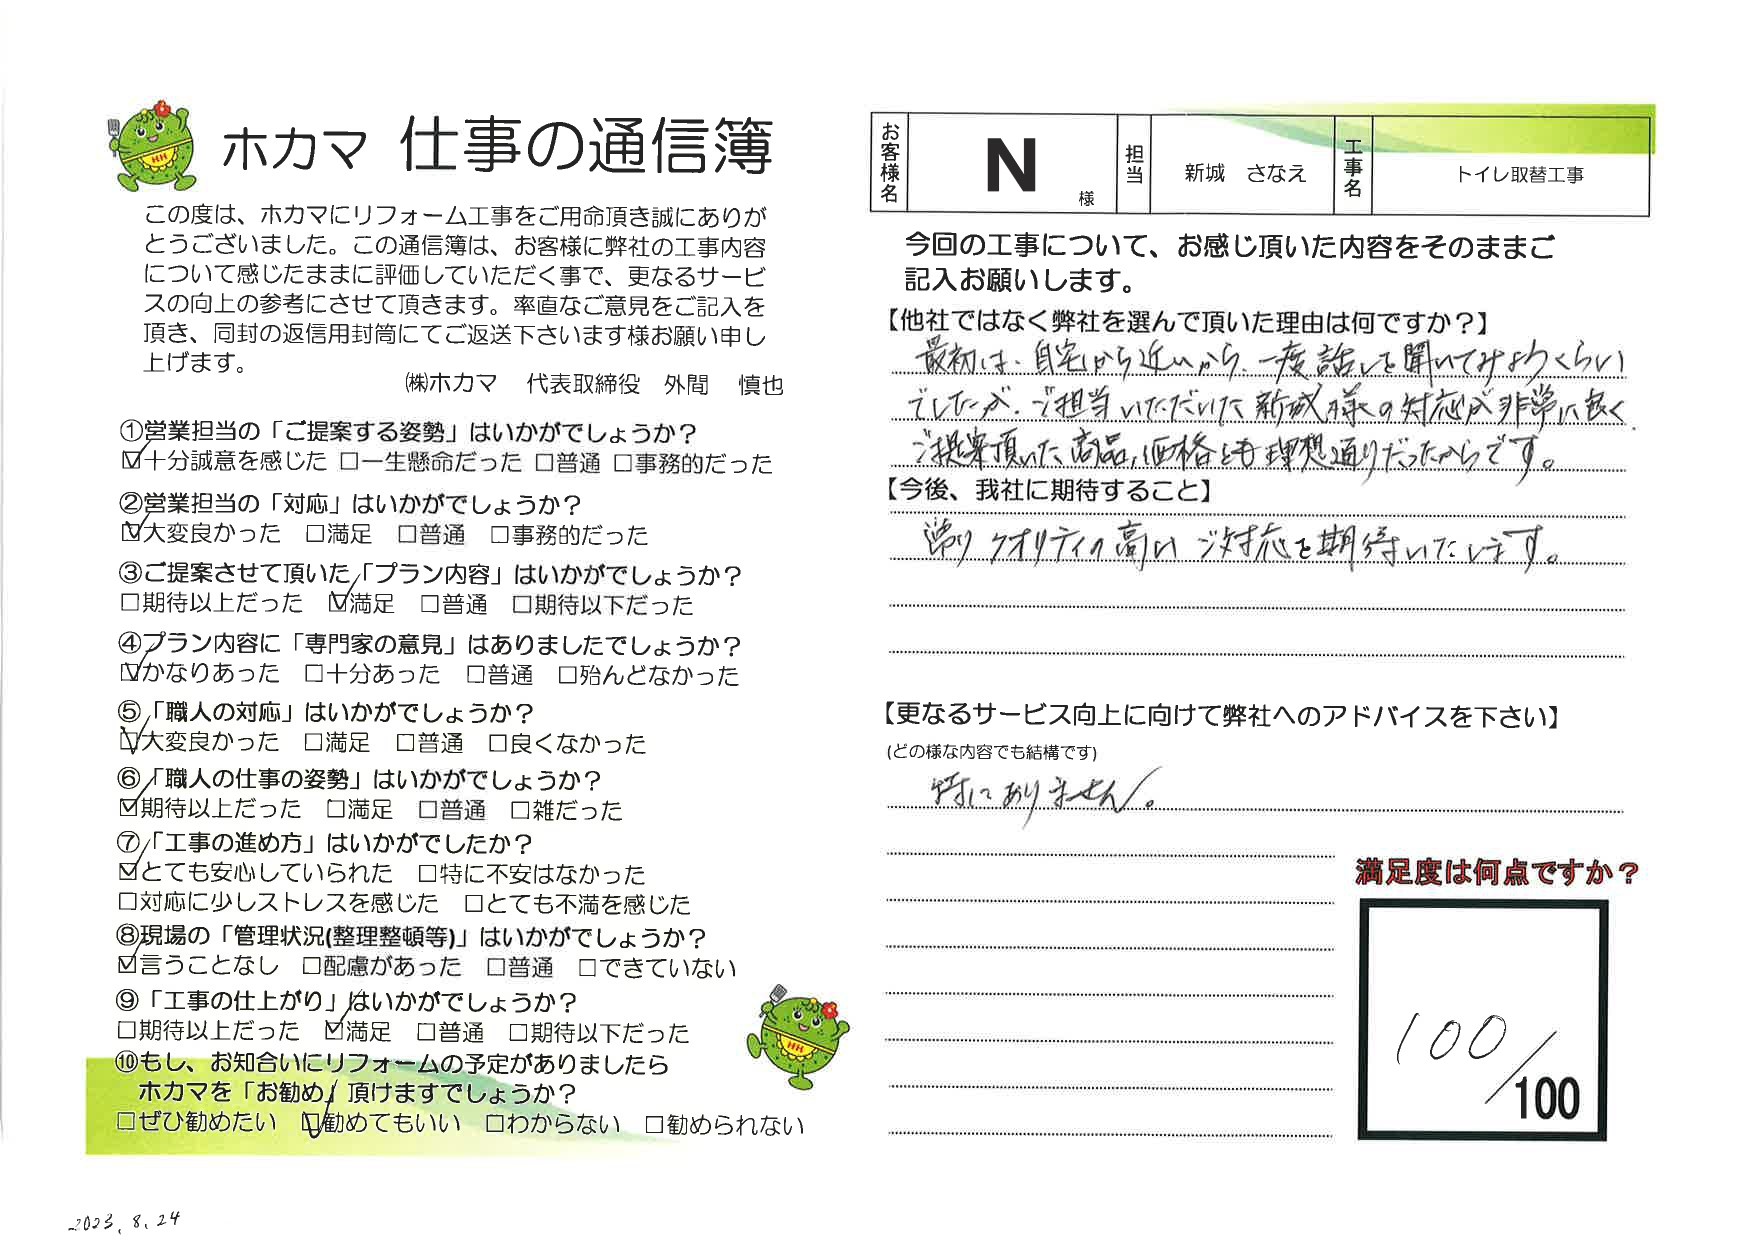 ホカマ 仕事の通信簿
この度は、ホカマにリフォーム工事をご用命頂き誠にありが
とうございました。この通信簿は、お客様に弊社の工事内容
について感じたままに評価していただく事で、更なるサービ
スの向上の参考にさせて頂きます。率直なご意見をご記入を
頂き、同封の返信用封筒にてご返送下さいます様お願い申し
上げます。
㈱ホカマ 代表取締役 外間 慎也
①営業担当の「ご提案する姿勢」はいかがでしょうか？
☑十分誠意を感じた □一生懸命だった □普通 □事務的だった
②営業担当の「対応」はいかがでしょうか？
☑大変良かった □満足 □普通 □事務的だった
③ご提案させて頂いた「プラン内容」はいかがでしょうか？
□期待以上だった ☑満足 □普通 □期待以下だった
④プラン内容に「専門家の意見」はありましたでしょうか？
☑かなりあった □十分あった □普通 □殆んどなかった
⑤「職人の対応」はいかがでしょうか？
☑大変良かった □満足 □普通 □良くなかった
⑥「職人の仕事の姿勢」はいかがでしょうか？
☑期待以上だった □満足 □普通 □雑だった
⑦「工事の進め方」はいかがでしたか？
☑とても安心していられた □特に不安はなかった
□対応に少しストレスを感じた □とても不満を感じた
⑧現場の「管理状況(整理整頓等)」はいかがでしょうか？
☑言うことなし □配慮があった □普通 □できていない
⑨「工事の仕上がり」はいかがでしょうか？
□期待以上だった ☑満足 □普通 □期待以下だった
⑩もし、お知合いにリフォームの予定がありましたら
ホカマを「お勧め」頂けますでしょうか？
□ぜひ勧めたい ☑勧めてもいい □わからない □勧められない
2023.8.24
お客様名 N 様 担当 新城 さなえ 工事名 トイレ取替工事
今回の工事について、お感じ頂いた内容をそのままご
記入お願いします。
【他社ではなく弊社を選んで頂いた理由は何ですか？】
最初は、自宅から近いから、一度話しを聞いてみようくらい
でしたが、ご担当いただいた新城様の対応が非常に良く、
ご提案頂いた商品、価格とも理想通りだったからです。
【今後、我社に期待すること】
クオリティの高いご対応を期待いたします。
【更なるサービス向上に向けて弊社へのアドバイスを下さい】
(どの様な内容でも結構です)
特にありません。
満足度は何点ですか？
100/100
HH
HH